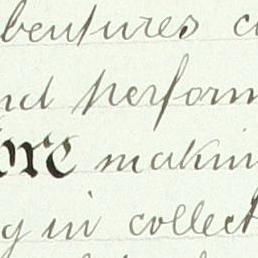 bentures c
nd perform
ore making
g in collect